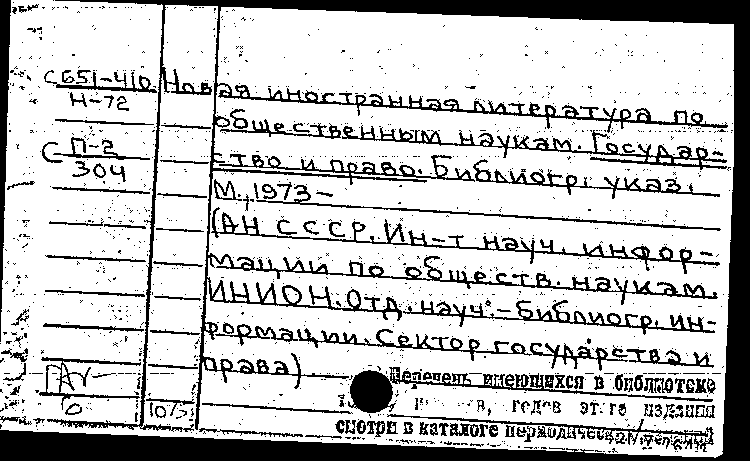 С651-410 Новая иностранная литература по
Н-72 общественным наукам. Государ-
С П-2 ство и право. Библиогр. указ.
304
М., 1973 -
(АН СССР. Ин-т науч. инфор-
мации по обществ. наукам.
ИНИОН. Отд. науч.-библиогр. ин-
формации. Сектор государства и
права)
Перечень имеющихся в библиотеке
годов этого издания
смотри в каталоге периодических